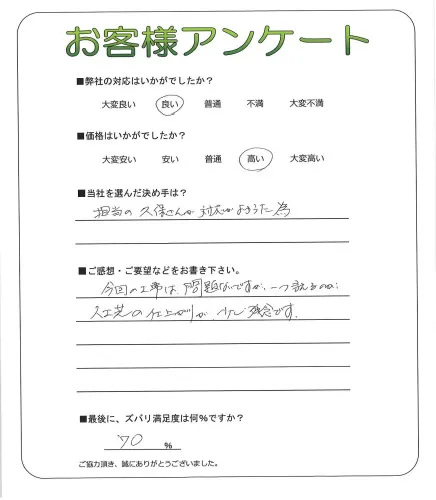 お客様アンケート
■弊社の対応はいかがでしたか？
大変良い 良い 普通 不満 大変不満
■価格はいかがでしたか？
大変安い 安い 普通 高い 大変高い
■当社を選んだ決め手は？
担当の久保さんが対応がよかった為
■ご感想・ご要望などをお書き下さい。
今回の工事は、問題ないですが、一つ言えるのは
人工芝の仕上がりが、少し残念です。
■最後に、ズバリ満足度は何%ですか？
70 %
ご協力頂き、誠にありがとうございました。